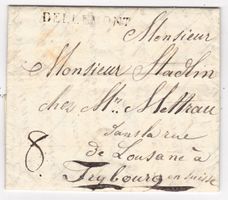 DELLEMONT
Monsieur
Monsieur Stadlin
chez Mr. Mettrau
dans la rue
de Lousane à
Freybourg en Suisse
8.